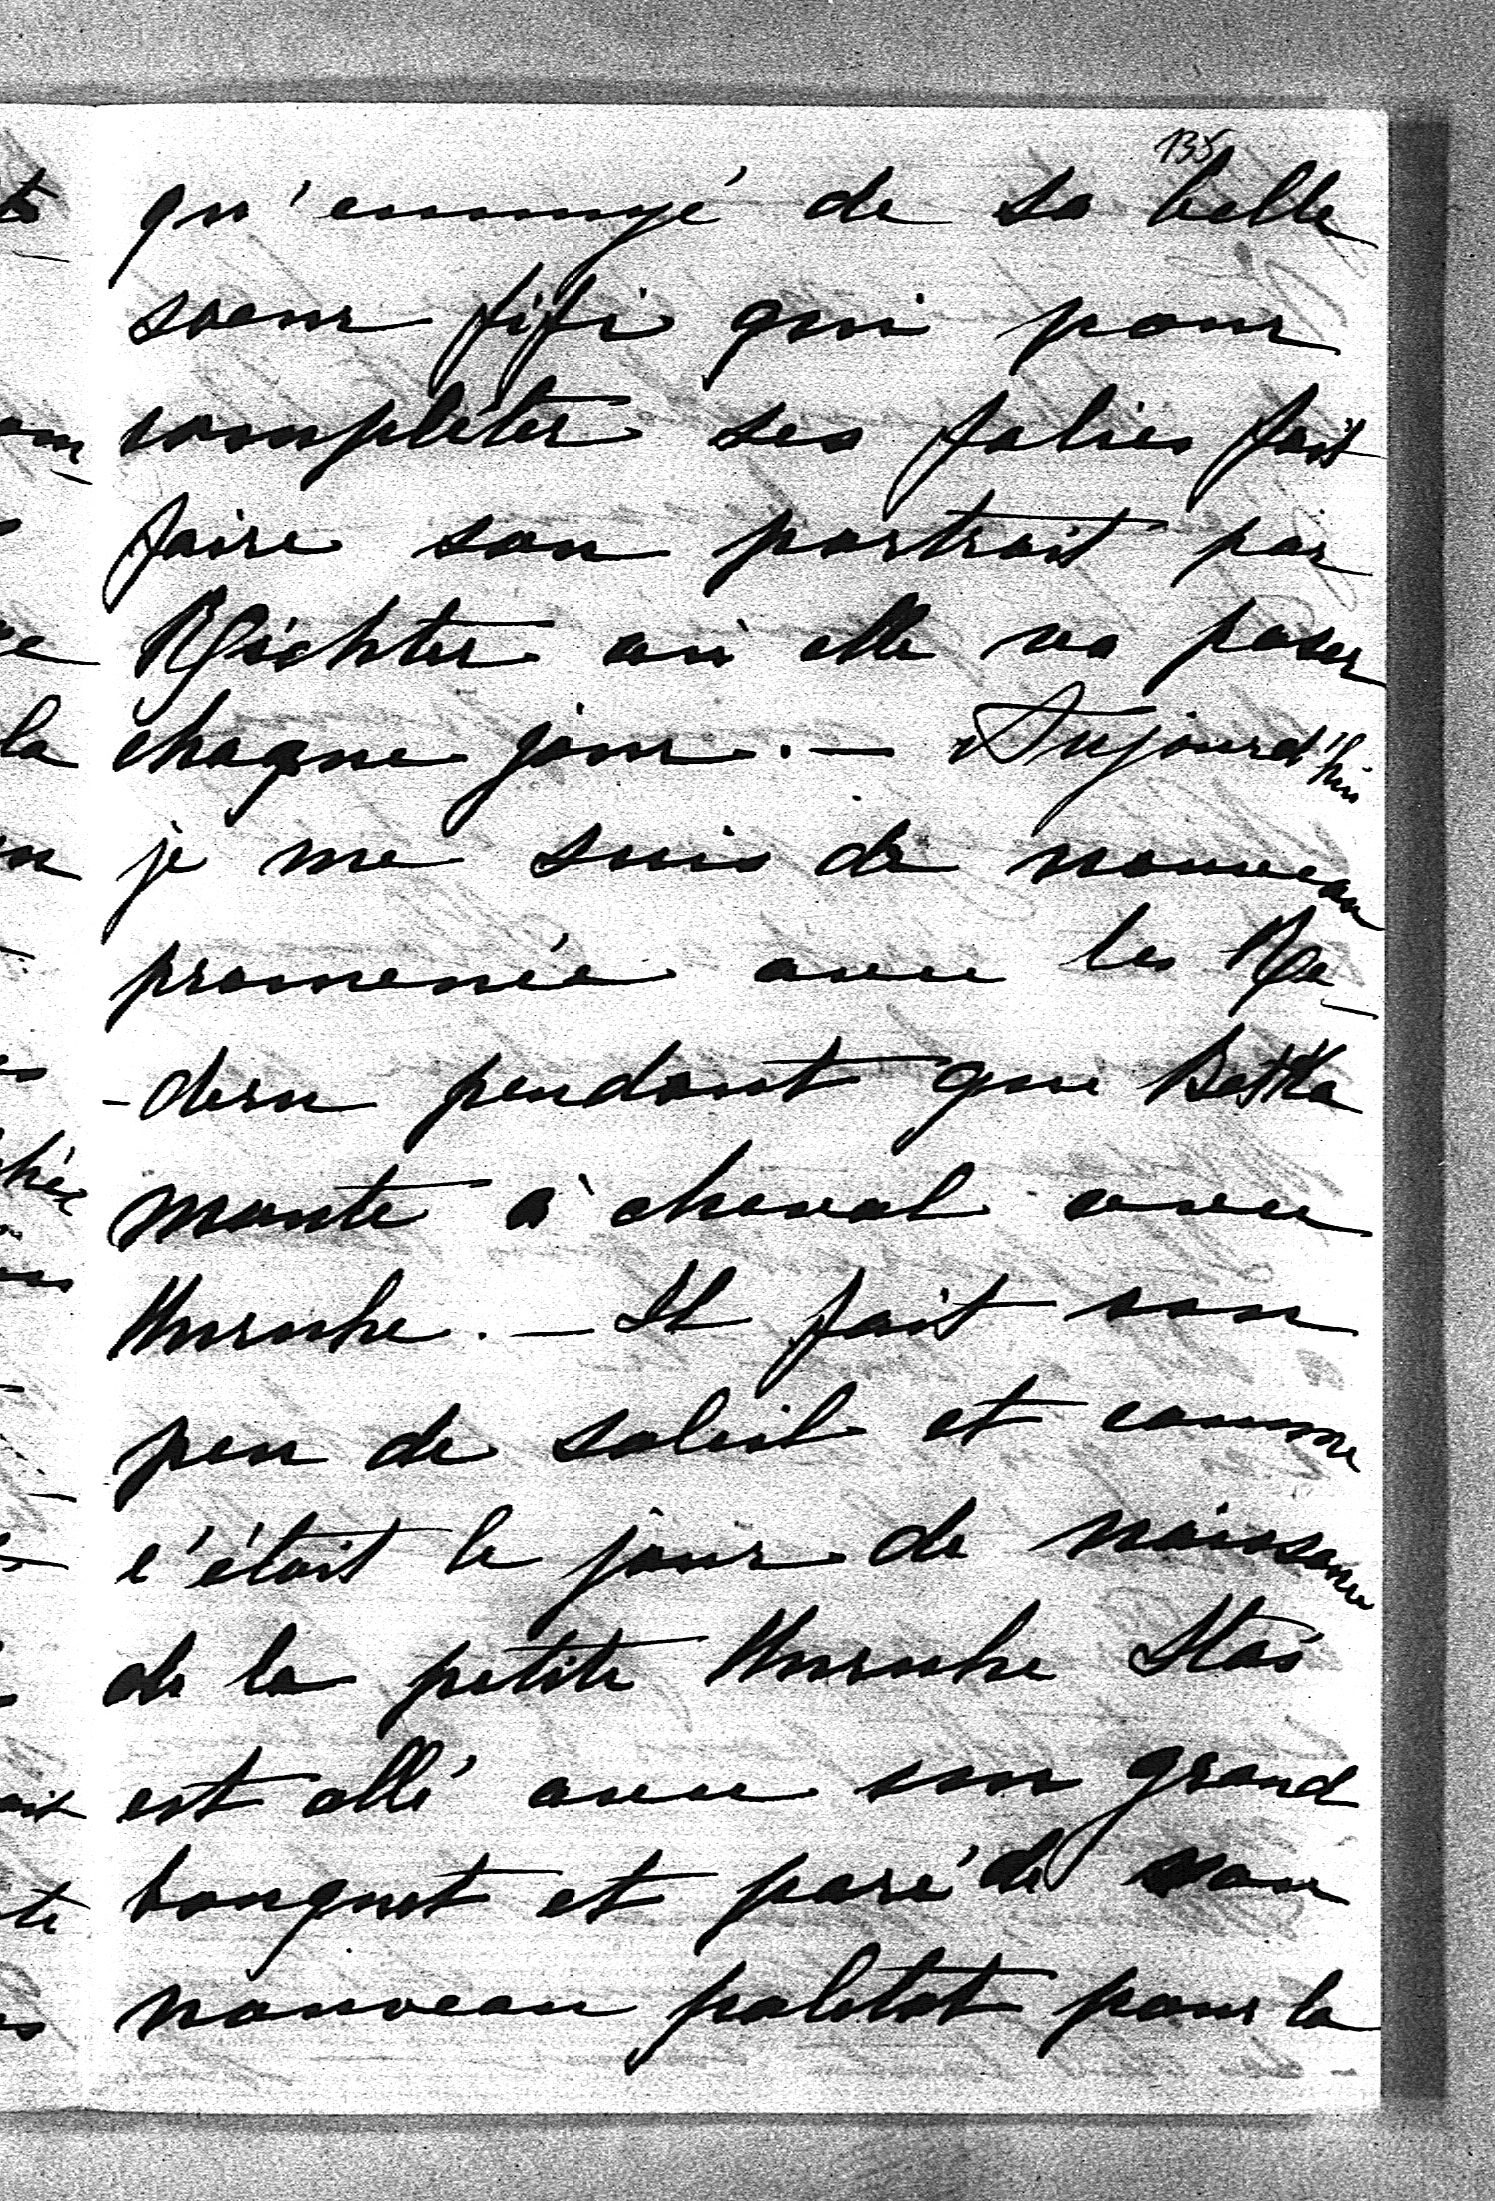 135
qu'ennuyé de sa belle
soeur fifi qui pour
compléter ses folies fait
faire son portrait par
Richter où elle va poser
chaque jour. — Aujourd'hui
je me suis de nouveau
promenée avec les Re-
-dern pendant que Betka
monte à cheval avec
Unruhe. — Il fait un
peu de soleil et comme
c'était le jour de naissance
de la petite Unruhe Stas
est allé avec un grand
bouquet et paré de son
nouveau paletot pour la